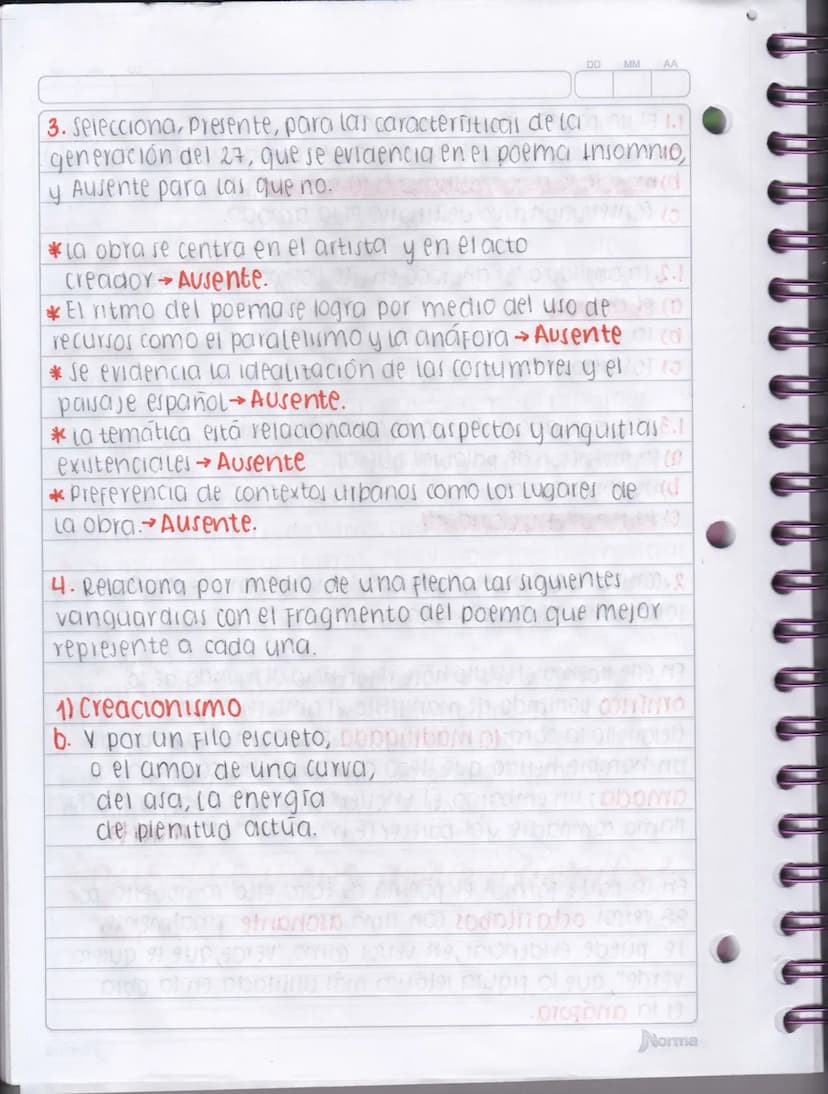 DD MM AA
3. Selecciona, Presente, para las características de la
generación del 27, que se evidencia en el poema Insomnio,
y Ausente para las que no.
* la obra se centra en el artista y en el acto
creador → Ausente.
* El ritmo del poema se logra por medio del uso de
recursos como el paralelismo y la anáfora → Ausente
* Se evidencia la idealización de las costumbres y el
paisaje español → Ausente.
* la temática está relacionada con aspectos y angustias
existenciales → Ausente
* Preferencia de contextos urbanos como los lugares de
la obra. → Ausente.
4. Relaciona por medio de una flecha las siguientes
vanguardias con el fragmento del poema que mejor
represente a cada una.
1) Creacionismo
b. Y por un filo escueto,
o el amor de una curva,
del asa, la energía
de plenitud actúa.
Norma